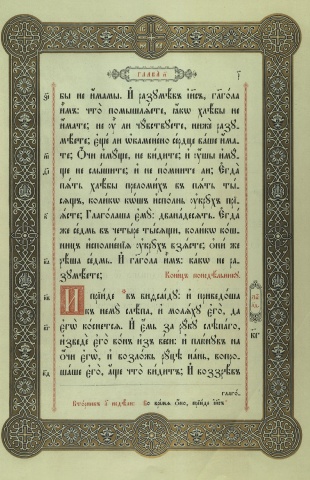 ГЛАВА и҃
бы не и҆́мамы. И҆ разꙋмѣ́въ і҆и҃съ, гл҃гола
и҆̀мъ: что̀ помышлѧ́ете, ꙗ҆́кѡ хлѣ́бы не
и҆́мате; не ᲂу҆̀ ли чꙋ́вствꙋете, нижѐ разꙋ-
мѣ́ете; є҆щѐ ли ѡ҆камене́но се́рдце ва́ше и҆́ма-
те; Ѻ҆́чи и҆мꙋ́ще, не ви́дите; и҆ ᲂу҆́шы и҆мꙋ́-
ще не слы́шите; и҆ не по́мните ли; Є҆гда̀
пѧ́ть хлѣ́бы преломи́хъ въ пѧ́ть ты́-
сѧщъ, коли́кѡ кѡ́шъ и҆спо́лнь ᲂу҆крꙋ́хъ прї-
ѧ́сте; Глаго́лаша є҆мꙋ̀: двана́десѧть. Є҆гда́
же се́дмь въ четы́ре ты́сѧщи, коли́кѡ ко́ш-
ницъ и҆сполне́нїѧ ᲂу҆крꙋ́хъ взѧ́сте; ѻ҆ни́ же
рѣ́ша се́дмь. И҆ гл҃гола и҆̀мъ: ка́кѡ не ра-
зꙋмѣ́ете; Коне́цъ понедѣ́льникꙋ.
И҆ прїи́де въ виѳсаі́дꙋ: и҆ приведо́ша
къ немꙋ̀ слѣ́па, и҆ молѧ́хꙋ є҆го̀, да
є҆го̀ ко́снетсѧ. И҆ є҆́мь за рꙋ́кꙋ слѣпа́го,
и҆зведѐ є҆го̀ во́нъ и҆з̾ ве́си: и҆ плю́нꙋвъ на
ѻ҆́чи є҆гѡ̀, и҆ возло́жь рꙋ́цѣ на́нь, вопро-
ша́ше є҆го̀, а҆́ще что̀ ви́дитъ; И҆ воззрѣ́въ
глаго-
Во вре́мѧ ѻ҆́но, прїи́де і҆и҃съ